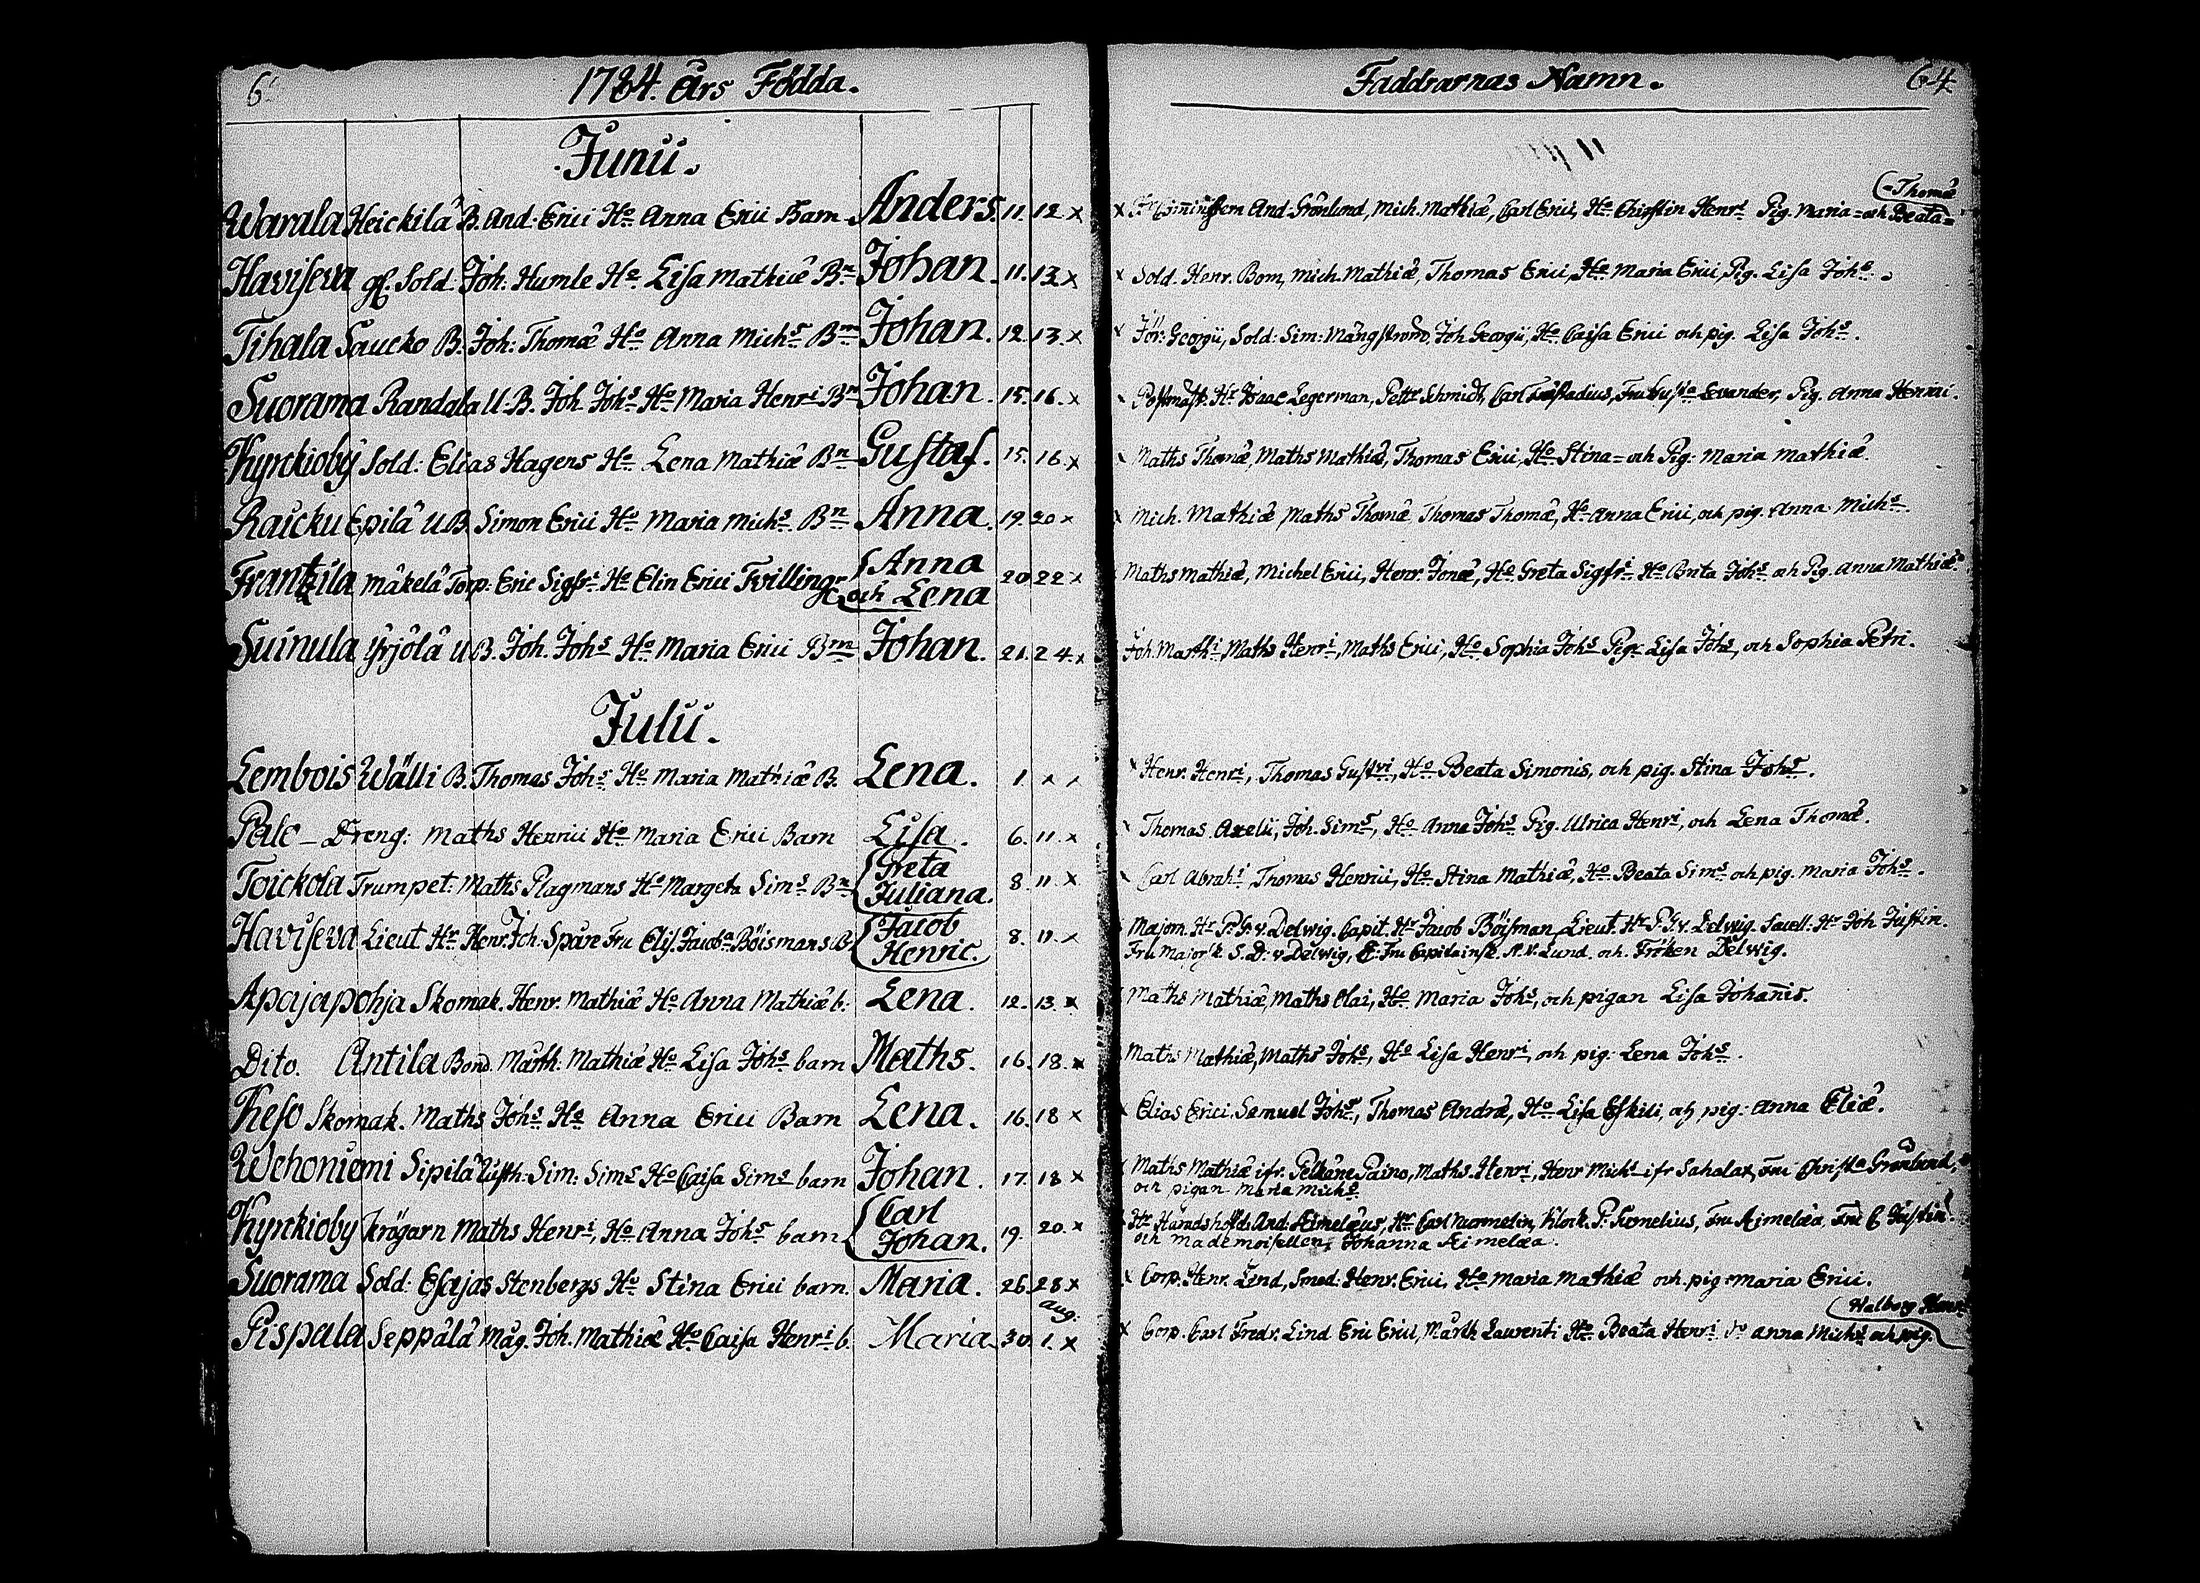 1784. Års Födda.
Junii.
Warala Heickilä B. And: Erici Ho Anna Erici Barn Anders. 11. 12 x
Haviseva gf. Sold. Joh: Humle Ho Lisa Mathiæ Bn Johan. 11. 13 x
Tihala Saucko B. Joh: Thomæ Ho Anna Michs Bn Johan. 12. 13. x
Suorama Randala U.B. Joh. Johs Ho Maria Henri Bn Johan. 15. 16. x
Kyrckioby Sold: Elias Hagens Ho Lena Mathiæ Bn Gustaf. 15. 16. x
Raicku Epilä U.B. Simon Erici Ho Maria Michs Bn Anna. 19. 20 x
Frantzila Mäkelä Torp: Eric Sigfri Ho Elin Erici Tvillingr Anna 20. 22 x
och Lena
Suinula Yrjölä U.B. Joh. Johs Ho Maria Erici Bn Johan. 21. 24. x
Julii.
Lembois Wälli B. Thomas Johs Ho Maria Mathiæ B. Lena. 1.
Palo - Dreng: Maths Henrici Ho Maria Erici Barn Lisa. 6. 11. x
Toickola Trumpet: Maths Plagmans Ho Margeta Sims Bn Greta Juliana. 8. 11. x
Haviseva Lieut Hr Henr. Joh. Spåre Fru Elis. Jacoba Böismans B. Jacob Henric. 8. 11. x
Apajapohja Skomak. Henr. Mathiæ Ho Anna Mathiæ b. Lena. 12. 13. x
Dito. Antila Bond. Märth. Mathiæ Ho Lisa Johs barn Maths. 16. 18. x
Keso Skomak. Maths Johs Ho Anna Erici Barn Lena. 16. 18 x
Wehoniemi Sipilä Sim: Sims Ho Caisa Sims barn Johan. 17. 18 x
Kyrckioby Krögarn Maths Henri, Ho Anna Johs barn Carl Johan. 19. 20. x
Suorama Sold: Esajas Stenbergs Ho Stina Erici barn. Maria. 26. 28 x
Aug.
Pispala Seppälä Måg. Joh. Mathiæ Ho Caisa Henri b. Maria 30. 1. x
Faddrarnas Namn. 64
Thomæ
x And: Grönlund, Mich. Mathiæ, Carl Erici, Ho Christin Henri Pig. Maria = och Beata =
x Sold. Henr. Bom, Mich. Mathiæ, Thomas Erici, Ho Maria Erici, Pig. Lisa Johs.
x Georgii, Sold: Sim: Mångström, Joh Georgii, Ho Caisa Erici och pig. Lisa Johs.
Postmäst. Hr Isaac Legerman, Pettr Schmidt, Carl Levander, Pig. Anna Henrici.
Maths Thomæ, Maths Mathiæ, Thomas Erici, Ho Stina = och Pig: Maria Mathiæ.
Mich. Mathiæ Maths Thomæ, Thomas Thomæ, Ho Anna Erici, och pig. Anna Michs.
Maths Mathiæ, Michel Erici, Henr. Jonæ, Ho Greta Sigfri Ho Brita Johs och Pig. Anna Mathiæ
Joh. Marthi, Maths Henri, Maths Erici, Ho Sophia Johs Pigr Lisa Johs, och Sophia Petri.
x Henr. Henri, Thomas Gustvi, Ho Beata Simonis, och pig. Stina Johs.
Thomas Axelii, Joh. Sims, Ho Anna Johs Pig. Ulrica Henri, och Lena Thomæ.
Carl Abrahi, Thomas Henrici, Ho Stina Mathiæ, Ho Beata Sims och pig. Maria Johs.
Majorn. Hr v. Delwig. Capit. Hr Jacob Böisman, Lieut Hr v. Delwig. Hr Joh Justin.
Fru Majorsk. S. D: v Delwig, Fru Capitainsk. Lund. och Fröken Delwig.
Maths Mathiæ, Maths Olai, Ho Maria Johs, och pigan Lisa Johañis.
Maths Mathiæ, Maths Johs, Ho Lisa Henri, och pig: Lena Johs.
x Elias Erici. Samuel Johs, Thomas Andræ, Ho Lisa Eskili, och pig: Anna Eliæ.
Maths Mathiæ ifr. Pelkäne Paino, Maths. Henri, Henr Michs ifr Sahalax, Fru Christa Grönlund,
och pigan Maria Michs
Hr Häradshöfd: And: Aimelæus, Hr Carl Klock. P. Fru Aimelæa, Fru C Justin
och mademoisellen, Johanna Aimelæa.
x Corp. Henr. Lind, Smed: Henr. Erici, Ho Maria Mathiæ och pig: Maria Erici.
Walborg Henri
x Corp. Carl Fredr. Lind Eric Erici, Märth Laurenti Ho Beata Henri Do Anna Michs och pig.